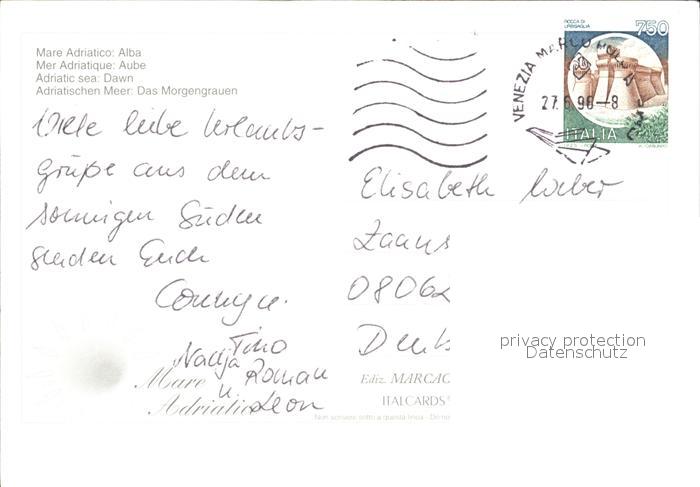 Mare Adriatico: Alba
Mer Adriatique: Aube
Adriatic sea: Dawn
Adriatischen Meer: Das Morgengrauen
Viele liebe Urlaubs-
grüße aus dem
sonnigen Süden
senden Euch
Conny u.
Tino
Nadja Roman
u. Leon
Mare
Adriatico
ROCCA DI
URBISAGLIA
750
ITALIA
VENEZIA MARCO POLO
27.6.90-8
Elisabeth Weber
privacy protection
Datenschutz
Ediz. MARCAC
ITALCARDS
Non scrivere sotto a questa linea - Do no